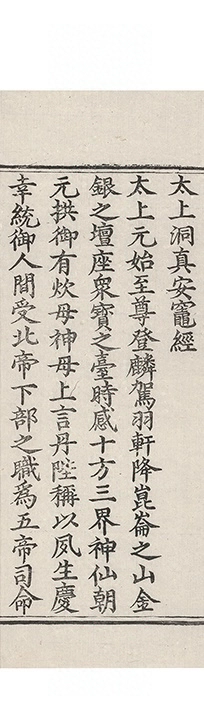 太上洞真安竈經
太上元始至尊登麟駕羽軒降崑崙之山金
銀之壇座衆寶之臺時感十方三界神仙朝
元拱御有炊母神母上言丹陛稱以夙生慶
幸統御人間受北帝下部之職為五帝司命